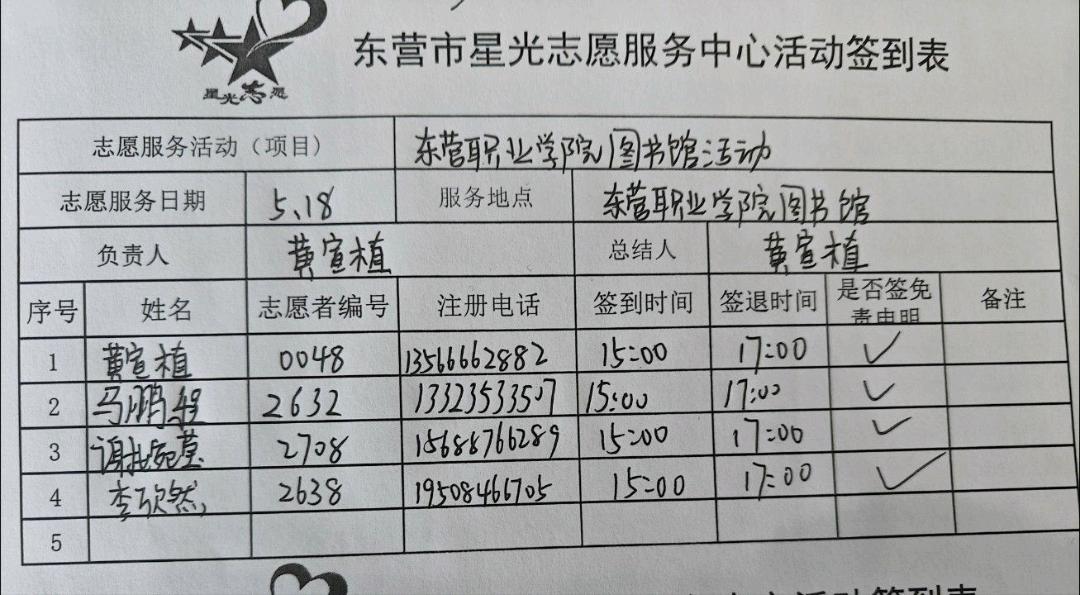 星光志愿
东营市星光志愿服务中心活动签到表
志愿服务活动（项目） 东营职业学院图书馆活动
志愿服务日期 5.18 服务地点 东营职业学院图书馆
负责人 黄宣植 总结人 黄宣植
序号 姓名 志愿者编号 注册电话 签到时间 签退时间 是否签免责申明 备注
1 黄宣植 0048 13566662882 15:00 17:00 ✓
2 马鹏程 2632 13323533507 15:00 17:00 ✓
3 谢 2708 15688766289 15:00 17:00 ✓
4 李欣然 2638 19508466705 15:00 17:00 ✓
5